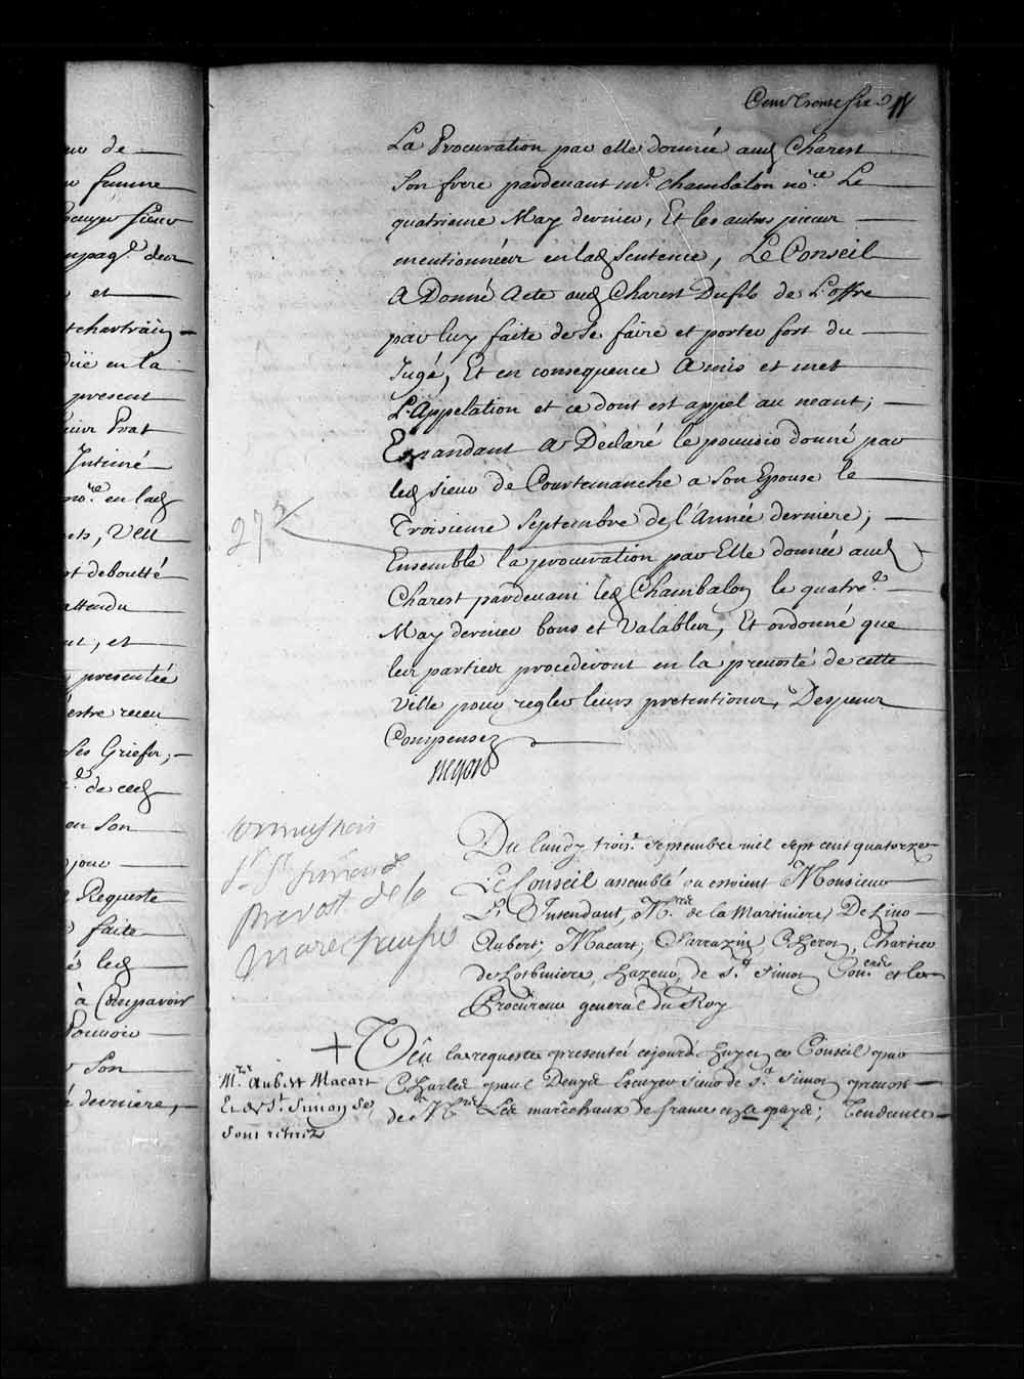 Cent trente six
La Procuration par elle donnée aud Charest
Son frere pardevant mr. Chambalon nore. Le
quatrieme May dernier, Et les autres pieces
mentionnées en lad Sentence, Le Conseil
A Donné Acte aud Charest Dufils de L'offre
par luy faite de se faire et porter fort du
Jugé, Et en consequence A mis et met
L'Appelation et ce dont est appel au neant;
Emandant A Déclaré le pouvoir donné par
led sieur de Courtemanche a Son Epouse le
Troisieme Septembre de l'Année derniere;
Ensemble la procuration par Elle donnée aud
Charest pardevant led Chambalon le quatre.
May dernier bons et Valables, Et ordonné que
les parties procederont en la prevosté de cette
Ville pour regler leurs pretentions, Despens
Compensez
Begon
Du lundy trois. Septembre mil Sept cent quatorze
Le Conseil assemblé ou estoient Monsieur
L'Intendant, Mrs. de la Martiniere, De Lino
Aubert, Macart, Sarrazin, Cheron, Chartier
de Lotbiniere, hazeur, de St. Simon Coners et le
Procureur general du Roy
Veu la requeste presentée cejourd'huy en ce Conseil par
Charles paul Denys Escuyer Sieur de St. Simon prevost
de Nrs. Les marêchaux de france en ce pays; Tendante
commission
Sr. St. Simon
prevost de la
marechaussée
Mrs. Aubert Macart
Et de St. Simon Se
Sont retirez
ur de
femme
et
düe en la
present
Prat
Intimé
nore. en lad
Veu
debouté
attendu
et
presentée
estre receu
Ses Griefs;
de ced
en Son
jour
Requeste
faite
led
à Comparoir
Pouvoir
Son
derniere,